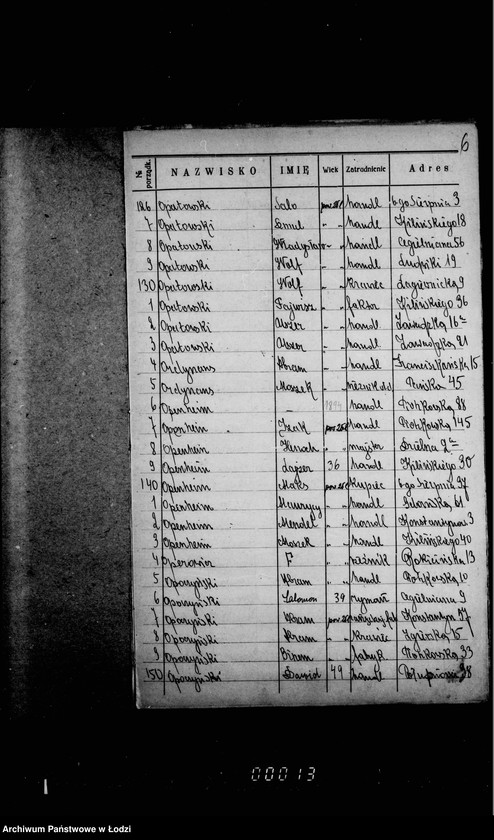 6
№ porządk. NAZWISKO IMIĘ Wiek Zatrudnienie Adres
126 Opatowski Salo handl 6-go Sierpnia 3
7 Opatowski Szmul " " handl Kilińskiego 18
8 Opatowski Władysław " " handl Cegielniana 56
9 Opatowski Wolf " " handl 19
130 Opatowski Wolf " " krawiec Łagiewnicka 9
1 Opatowski " " faktor Kilińskiego 96
2 Opatowski Abzer " " handl
3 Opatowski Abzer " " handl 21
4 Ordynans Abram " " handl Franciszkańska 15
5 Ordynans Moszek " " 45
6 Openheim – 1894 handl Piotrkowska 88
7 Openheim Icak handl Piotrkowska 145
8 Openheim Henoch " " majster Dzielna
9 Openheim Lajzer 36 handl Kilińskiego 90
140 Openheim Maks kupiec 6-go Sierpnia 37
1 Openheim Maurycy " " handl Gdańska 61
2 Openheim Mendel " " handl Konstantynows 3
3 Openheim Moszek " " handl Kilińskiego 40
4 F " " Rokicińska 13
5 Opoczyński Abram " " handl Piotrkowska 10
6 Opoczyński Salomon 39 rymarz Cegielniana 9
7 Opoczyński Abram Konstantyn 37
8 Opoczyński Abram " " krawiec Zgierska 15
9 Opoczyński " " fabryk Piotrkowska 33
150 Opoczyński Dawid 49 handl 38
00013
Archiwum Państwowe w Łodzi